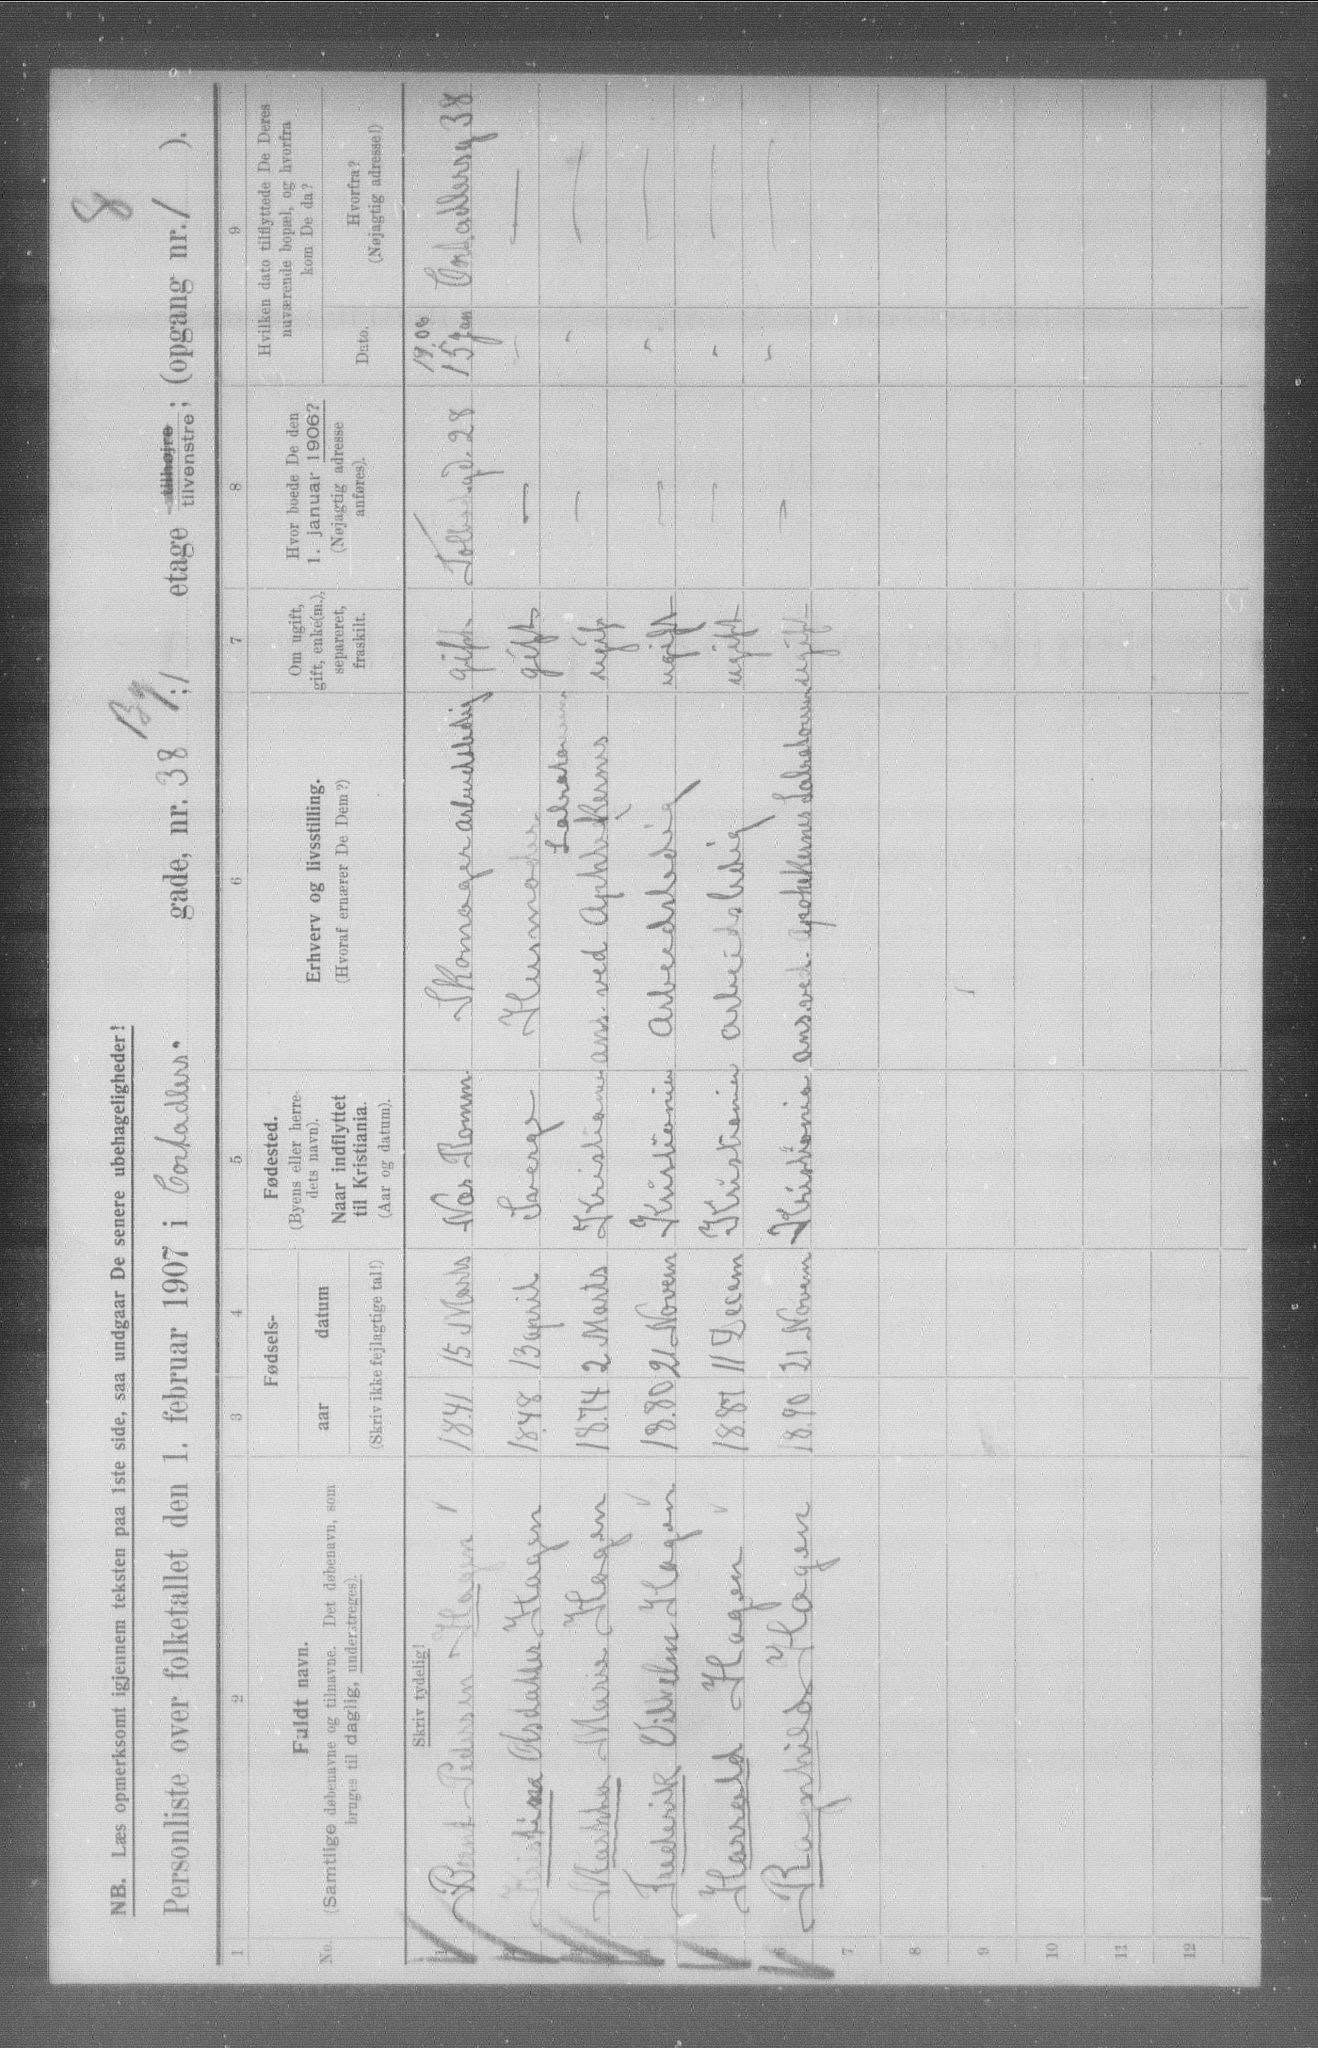 8
NB. Læs opmerksomt igjennem teksten paa 1ste side, saa undgaar De senere ubehageligheder!
By
Personliste over folketallet den 1. februar 1907 i Cortadlers. gade, nr. 38 ; 1 etage tilhøjre tilvenstre; (opgang nr. / ).
1 2 3 4 5 6 7 8 9
No.
Fuldt navn.
(Samtlige døbenavne og tilnavne. Det døbenavn, som
bruges til daglig, understreges).
Fødsels-
aar datum
(Skriv ikke fejlagtige tal!)
Fødested.
(Byens eller herre-
dets navn).
Naar indflyttet
til Kristiania.
(Aar og datum).
Erhverv og livsstilling.
(Hvoraf ernærer De Dem?)
Om ugift,
gift, enke(m.),
separeret,
fraskilt.
Hvor boede De den
1. januar 1906?
(Nøjagtig adresse
anføres).
Hvilken dato tilflyttede De Deres
nuværende bopæl, og hvorfra
kom De da?
Dato. Hvorfra?
(Nøjagtig adresse!)
Skriv tydelig!
1 Bernt Pedersen Hagen 1841 15 Marts Næs Romm Skomager arbeidsledig gift 28 1906 15 Jan 38
2 Kristina Hagen 1848 13 april Sverge Husmoder gift — - —
3 Martha Marie Hagen 1874 2 Marts Kristiania ans. ved ugift — - —
4 Frederik Vilhelm Hagen 1880 21 Novem Kristiania arbeidsledig ugift — - —
5 Harrald Hagen 1887 11 Decem Kristiania arbeidsledig ugift — - —
6 Ragnhild Hagen 1890 21 Novem Kristiania ans. ved. ugift — - —
7
8
9
10
11
12